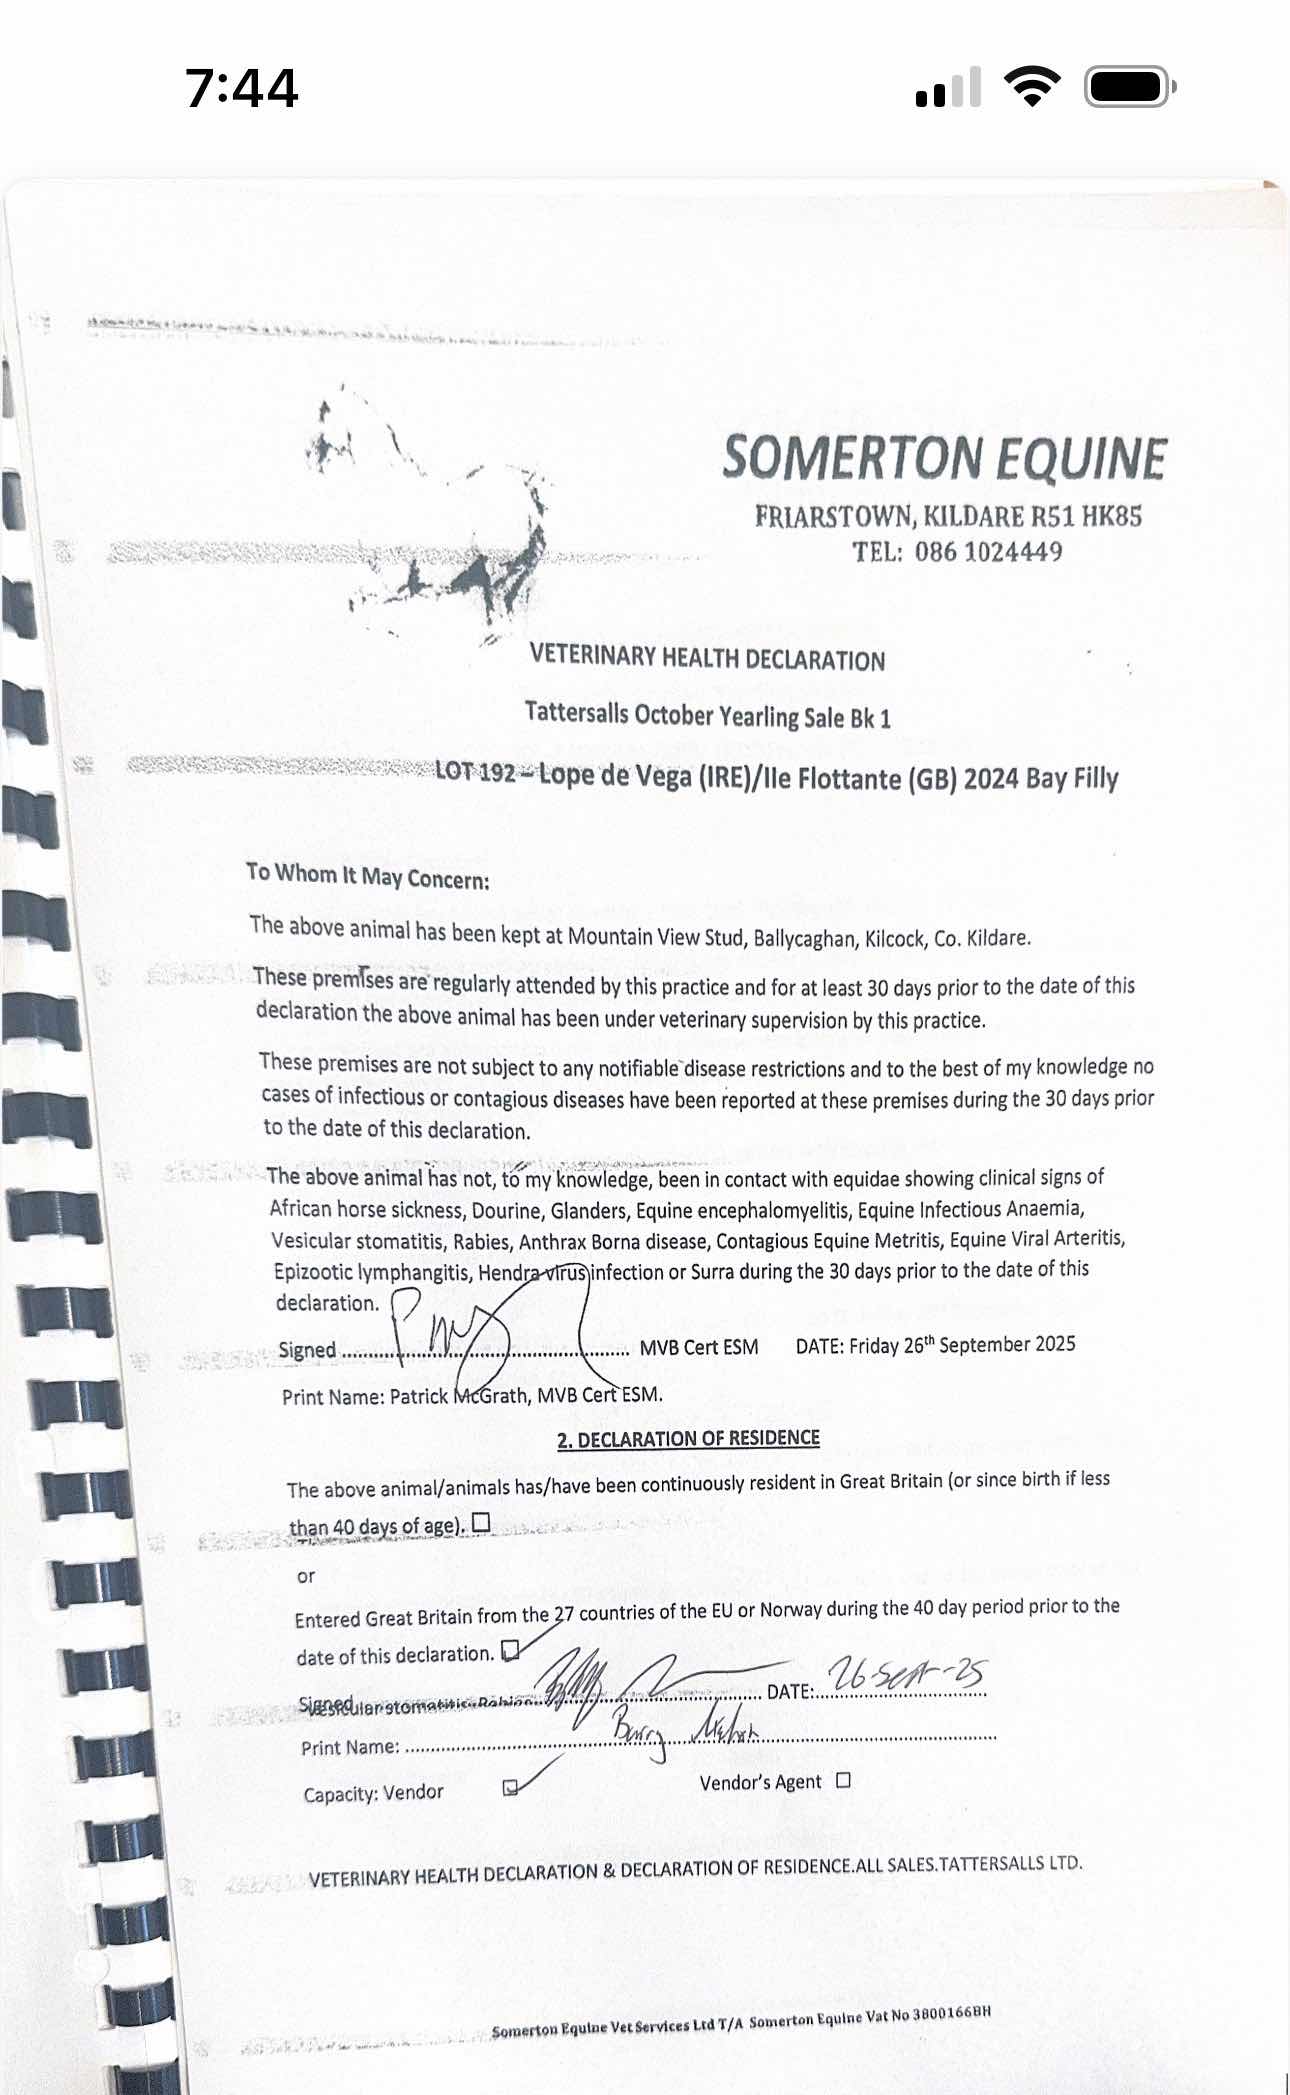 7:44
SOMERTON EQUINE
FRIARSTOWN, KILDARE R51 HK85
TEL: 086 1024449
VETERINARY HEALTH DECLARATION
Tattersalls October Yearling Sale Bk 1
LOT 192 – Lope de Vega (IRE)/Ile Flottante (GB) 2024 Bay Filly
To Whom It May Concern:
The above animal has been kept at Mountain View Stud, Ballycaghan, Kilcock, Co. Kildare.
These premises are regularly attended by this practice and for at least 30 days prior to the date of this
declaration the above animal has been under veterinary supervision by this practice.
These premises are not subject to any notifiable disease restrictions and to the best of my knowledge no
cases of infectious or contagious diseases have been reported at these premises during the 30 days prior
to the date of this declaration.
The above animal has not, to my knowledge, been in contact with equidae showing clinical signs of
African horse sickness, Dourine, Glanders, Equine encephalomyelitis, Equine Infectious Anaemia,
Vesicular stomatitis, Rabies, Anthrax Borna disease, Contagious Equine Metritis, Equine Viral Arteritis,
Epizootic lymphangitis, Hendra virus infection or Surra during the 30 days prior to the date of this
declaration.
Signed .................................................. MVB Cert ESM DATE: Friday 26th September 2025
Print Name: Patrick McGrath, MVB Cert ESM.
2. DECLARATION OF RESIDENCE
The above animal/animals has/have been continuously resident in Great Britain (or since birth if less
than 40 days of age). ☐
or
Entered Great Britain from the 27 countries of the EU or Norway during the 40 day period prior to the
date of this declaration. ☑
Signed .................................................. DATE: 26-Sept-25
Print Name: Barry
Capacity: Vendor ☑ Vendor's Agent ☐
VETERINARY HEALTH DECLARATION & DECLARATION OF RESIDENCE.ALL SALES.TATTERSALLS LTD.
Somerton Equine Vet Services Ltd T/A Somerton Equine Vat No 3800166BH